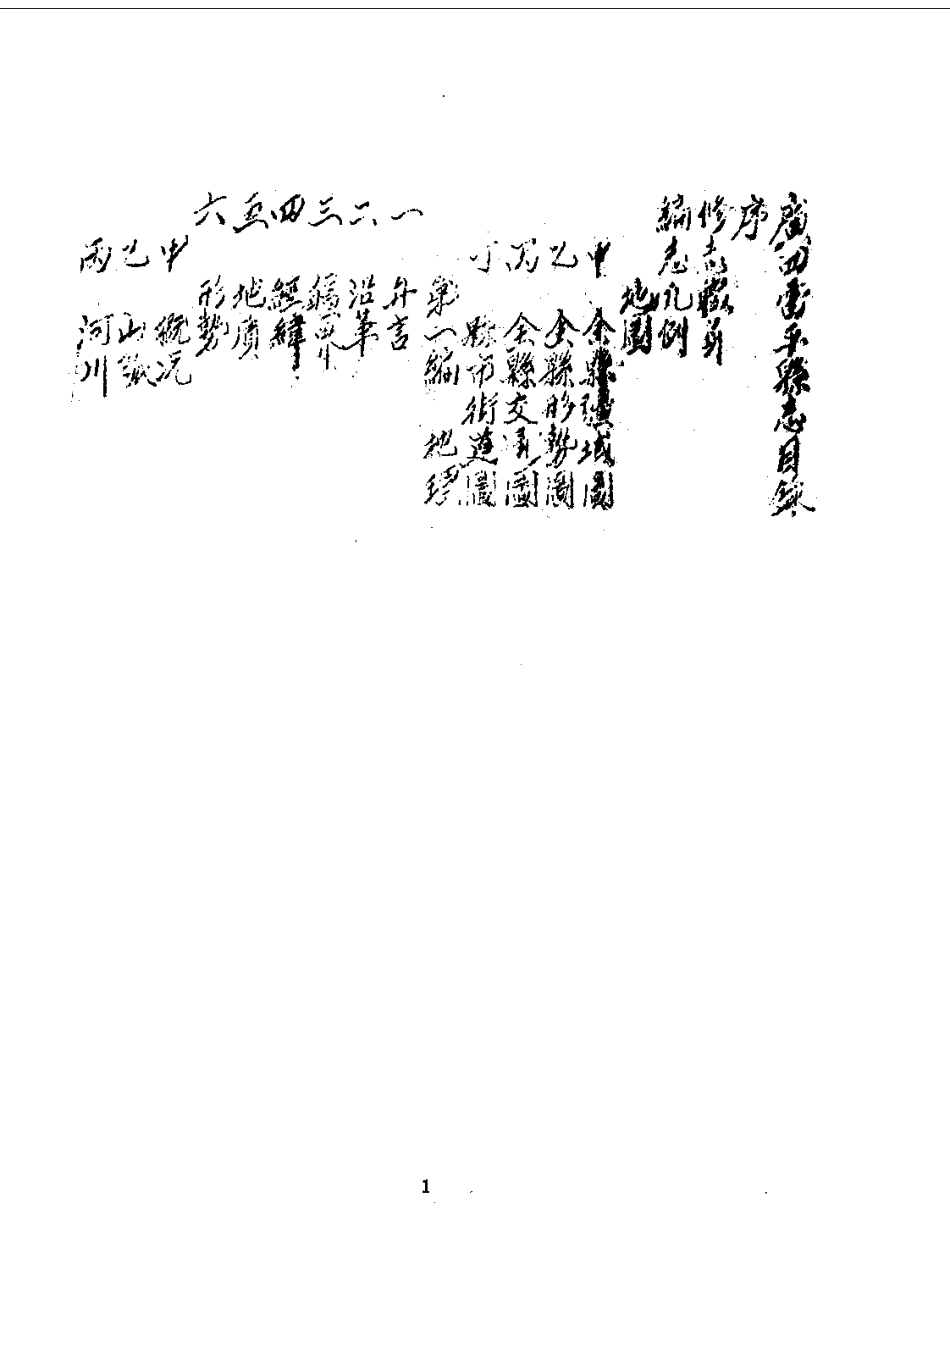 廣西雷平縣志目錄
序
修志職員
編志凡例
地圖
甲 全縣疆域圖
乙 全縣形勢圖
丙 全縣交通圖
丁 縣市街道圖
第一編 地理
一 弁言
二 沿革
三 疆界
四 經緯
五 地質
六 形勢
甲 概況
乙 山脈
丙 河川
1